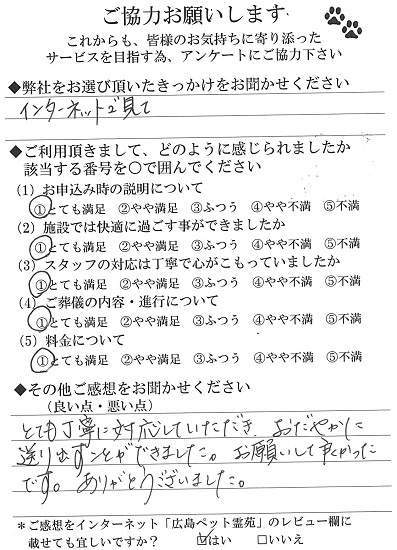 ご協力お願いします
これからも、皆様のお気持ちに寄り添った
サービスを目指す為、アンケートにご協力下さい
◆弊社をお選び頂いたきっかけをお聞かせください
インターネットで見て
◆ご利用頂きまして、どのように感じられましたか
該当する番号を〇で囲んでください
(1) お申込み時の説明について
①とても満足 ②やや満足 ③ふつう ④やや不満 ⑤不満
(2) 施設では快適に過ごす事ができましたか
①とても満足 ②やや満足 ③ふつう ④やや不満 ⑤不満
(3) スタッフの対応は丁寧で心がこもっていましたか
①とても満足 ②やや満足 ③ふつう ④やや不満 ⑤不満
(4) ご葬儀の内容・進行について
①とても満足 ②やや満足 ③ふつう ④やや不満 ⑤不満
(5) 料金について
①とても満足 ②やや満足 ③ふつう ④やや不満 ⑤不満
◆その他ご感想をお聞かせください
(良い点・悪い点)
とても丁寧に対応していただき、おだやかに
送り出すことができました。お願いして良かった
です。ありがとうございました。
*ご感想をインターネット「広島ペット霊苑」のレビュー欄に
載せても宜しいですか? ☑はい □いいえ